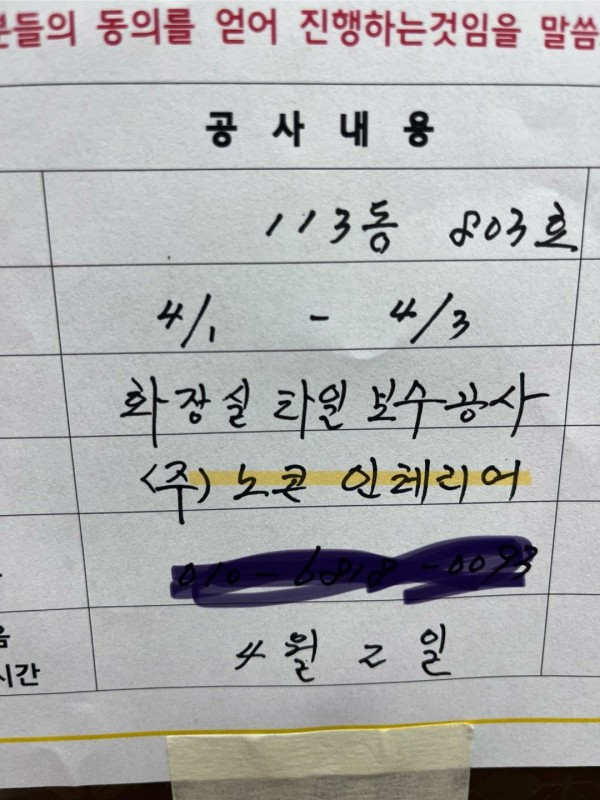 분들의 동의를 얻어 진행하는것임을 말씀
공 사 내 용
113동 803호
4/1 - 4/3
화장실 타일 보수공사
(주) 노콘 인테리어
4월 2일
시간